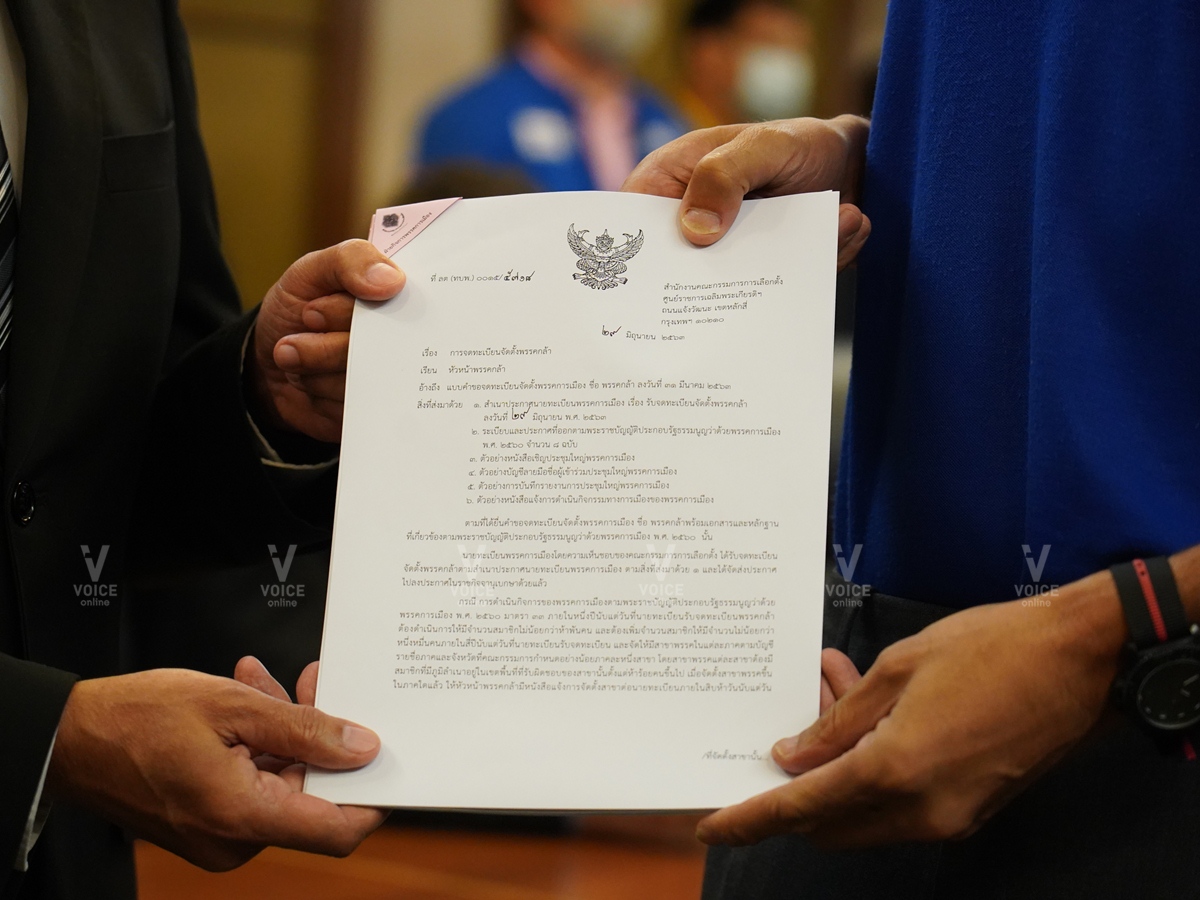 ที่ ลต (ทบพ.) ๐๐๑๕/
สำนักงานคณะกรรมการการเลือกตั้ง
ศูนย์ราชการเฉลิมพระเกียรติฯ
ถนนแจ้งวัฒนะ เขตหลักสี่
กรุงเทพฯ ๑๐๒๑๐
๒๙ มิถุนายน ๒๕๖๓
เรื่อง การจดทะเบียนจัดตั้งพรรคกล้า
เรียน หัวหน้าพรรคกล้า
อ้างถึง แบบคำขอจดทะเบียนจัดตั้งพรรคการเมือง ชื่อ พรรคกล้า ลงวันที่ ๓๑ มีนาคม ๒๕๖๓
สิ่งที่ส่งมาด้วย ๑. สำเนาประกาศนายทะเบียนพรรคการเมือง เรื่อง รับจดทะเบียนจัดตั้งพรรคกล้า
ลงวันที่ ๒๙ มิถุนายน พ.ศ. ๒๕๖๓
๒. ระเบียบและประกาศที่ออกตามพระราชบัญญัติประกอบรัฐธรรมนูญว่าด้วยพรรคการเมือง
พ.ศ. ๒๕๖๐ จำนวน ๘ ฉบับ
๓. ตัวอย่างหนังสือเชิญประชุมใหญ่พรรคการเมือง
๔. ตัวอย่างบัญชีลายมือชื่อผู้เข้าร่วมประชุมใหญ่พรรคการเมือง
๕. ตัวอย่างการบันทึกรายงานการประชุมใหญ่พรรคการเมือง
๖. ตัวอย่างหนังสือแจ้งการดำเนินกิจกรรมทางการเมืองของพรรคการเมือง
ตามที่ได้ยื่นคำขอจดทะเบียนจัดตั้งพรรคการเมือง ชื่อ พรรคกล้าพร้อมเอกสารและหลักฐาน
ที่เกี่ยวข้องตามพระราชบัญญัติประกอบรัฐธรรมนูญว่าด้วยพรรคการเมือง พ.ศ. ๒๕๖๐ นั้น
นายทะเบียนพรรคการเมืองโดยความเห็นชอบของคณะกรรมการการเลือกตั้ง ได้รับจดทะเบียน
จัดตั้งพรรคกล้าตามสำเนาประกาศนายทะเบียนพรรคการเมือง ตามสิ่งที่ส่งมาด้วย ๑ และได้จัดส่งประกาศ
ไปลงประกาศในราชกิจจานุเบกษาด้วยแล้ว
กรณี การดำเนินกิจการของพรรคการเมืองตามพระราชบัญญัติประกอบรัฐธรรมนูญว่าด้วย
พรรคการเมือง พ.ศ. ๒๕๖๐ มาตรา ๓๓ ภายในหนึ่งปีนับแต่วันที่นายทะเบียนรับจดทะเบียนพรรคกล้า
ต้องดำเนินการให้มีจำนวนสมาชิกไม่น้อยกว่าห้าพันคน และต้องเพิ่มจำนวนสมาชิกให้มีจำนวนไม่น้อยกว่า
หนึ่งหมื่นคนภายในสี่ปีนับแต่วันที่นายทะเบียนรับจดทะเบียน และจัดให้มีสาขาพรรคในแต่ละภาคตามบัญชี
รายชื่อภาคและจังหวัดที่คณะกรรมการกำหนดอย่างน้อยภาคละหนึ่งสาขา โดยสาขาพรรคแต่ละสาขาต้องมี
สมาชิกที่มีภูมิลำเนาอยู่ในเขตพื้นที่ที่รับผิดชอบของสาขานั้นตั้งแต่ห้าร้อยคนขึ้นไป เมื่อจัดตั้งสาขาพรรคขึ้น
ในภาคใดแล้ว ให้หัวหน้าพรรคกล้ามีหนังสือแจ้งการจัดตั้งสาขาต่อนายทะเบียนภายในสิบห้าวันนับแต่วัน
/ที่จัดตั้งสาขานั้น...
VOICE online
VOICE online
VOICE online
VOICE online
VOICE online
VOICE online